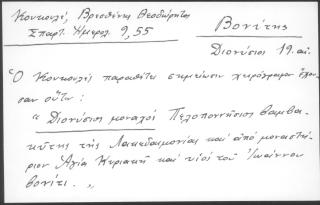 Κουκουλέ, Βρεσθένης Θεοδώρητος
Σπαρτ. Ημερολ. 9,55
Βονίτης
Διονύσιος 19. αι.
Ὁ Κουκουλές παραθέτει σημείωσιν χειρόγραφον ἔχου-
σαν οὕτω:
" Διονύσιος μοναχοί Πελοποννήσιος βαμβα-
κύτης τῆς Λακεδαιμονίας καί ἀπό μοναστή-
ριον Ἁγία Κυριακή καί υἱοί τοῦ Ἰωάννου
βονίτι. „